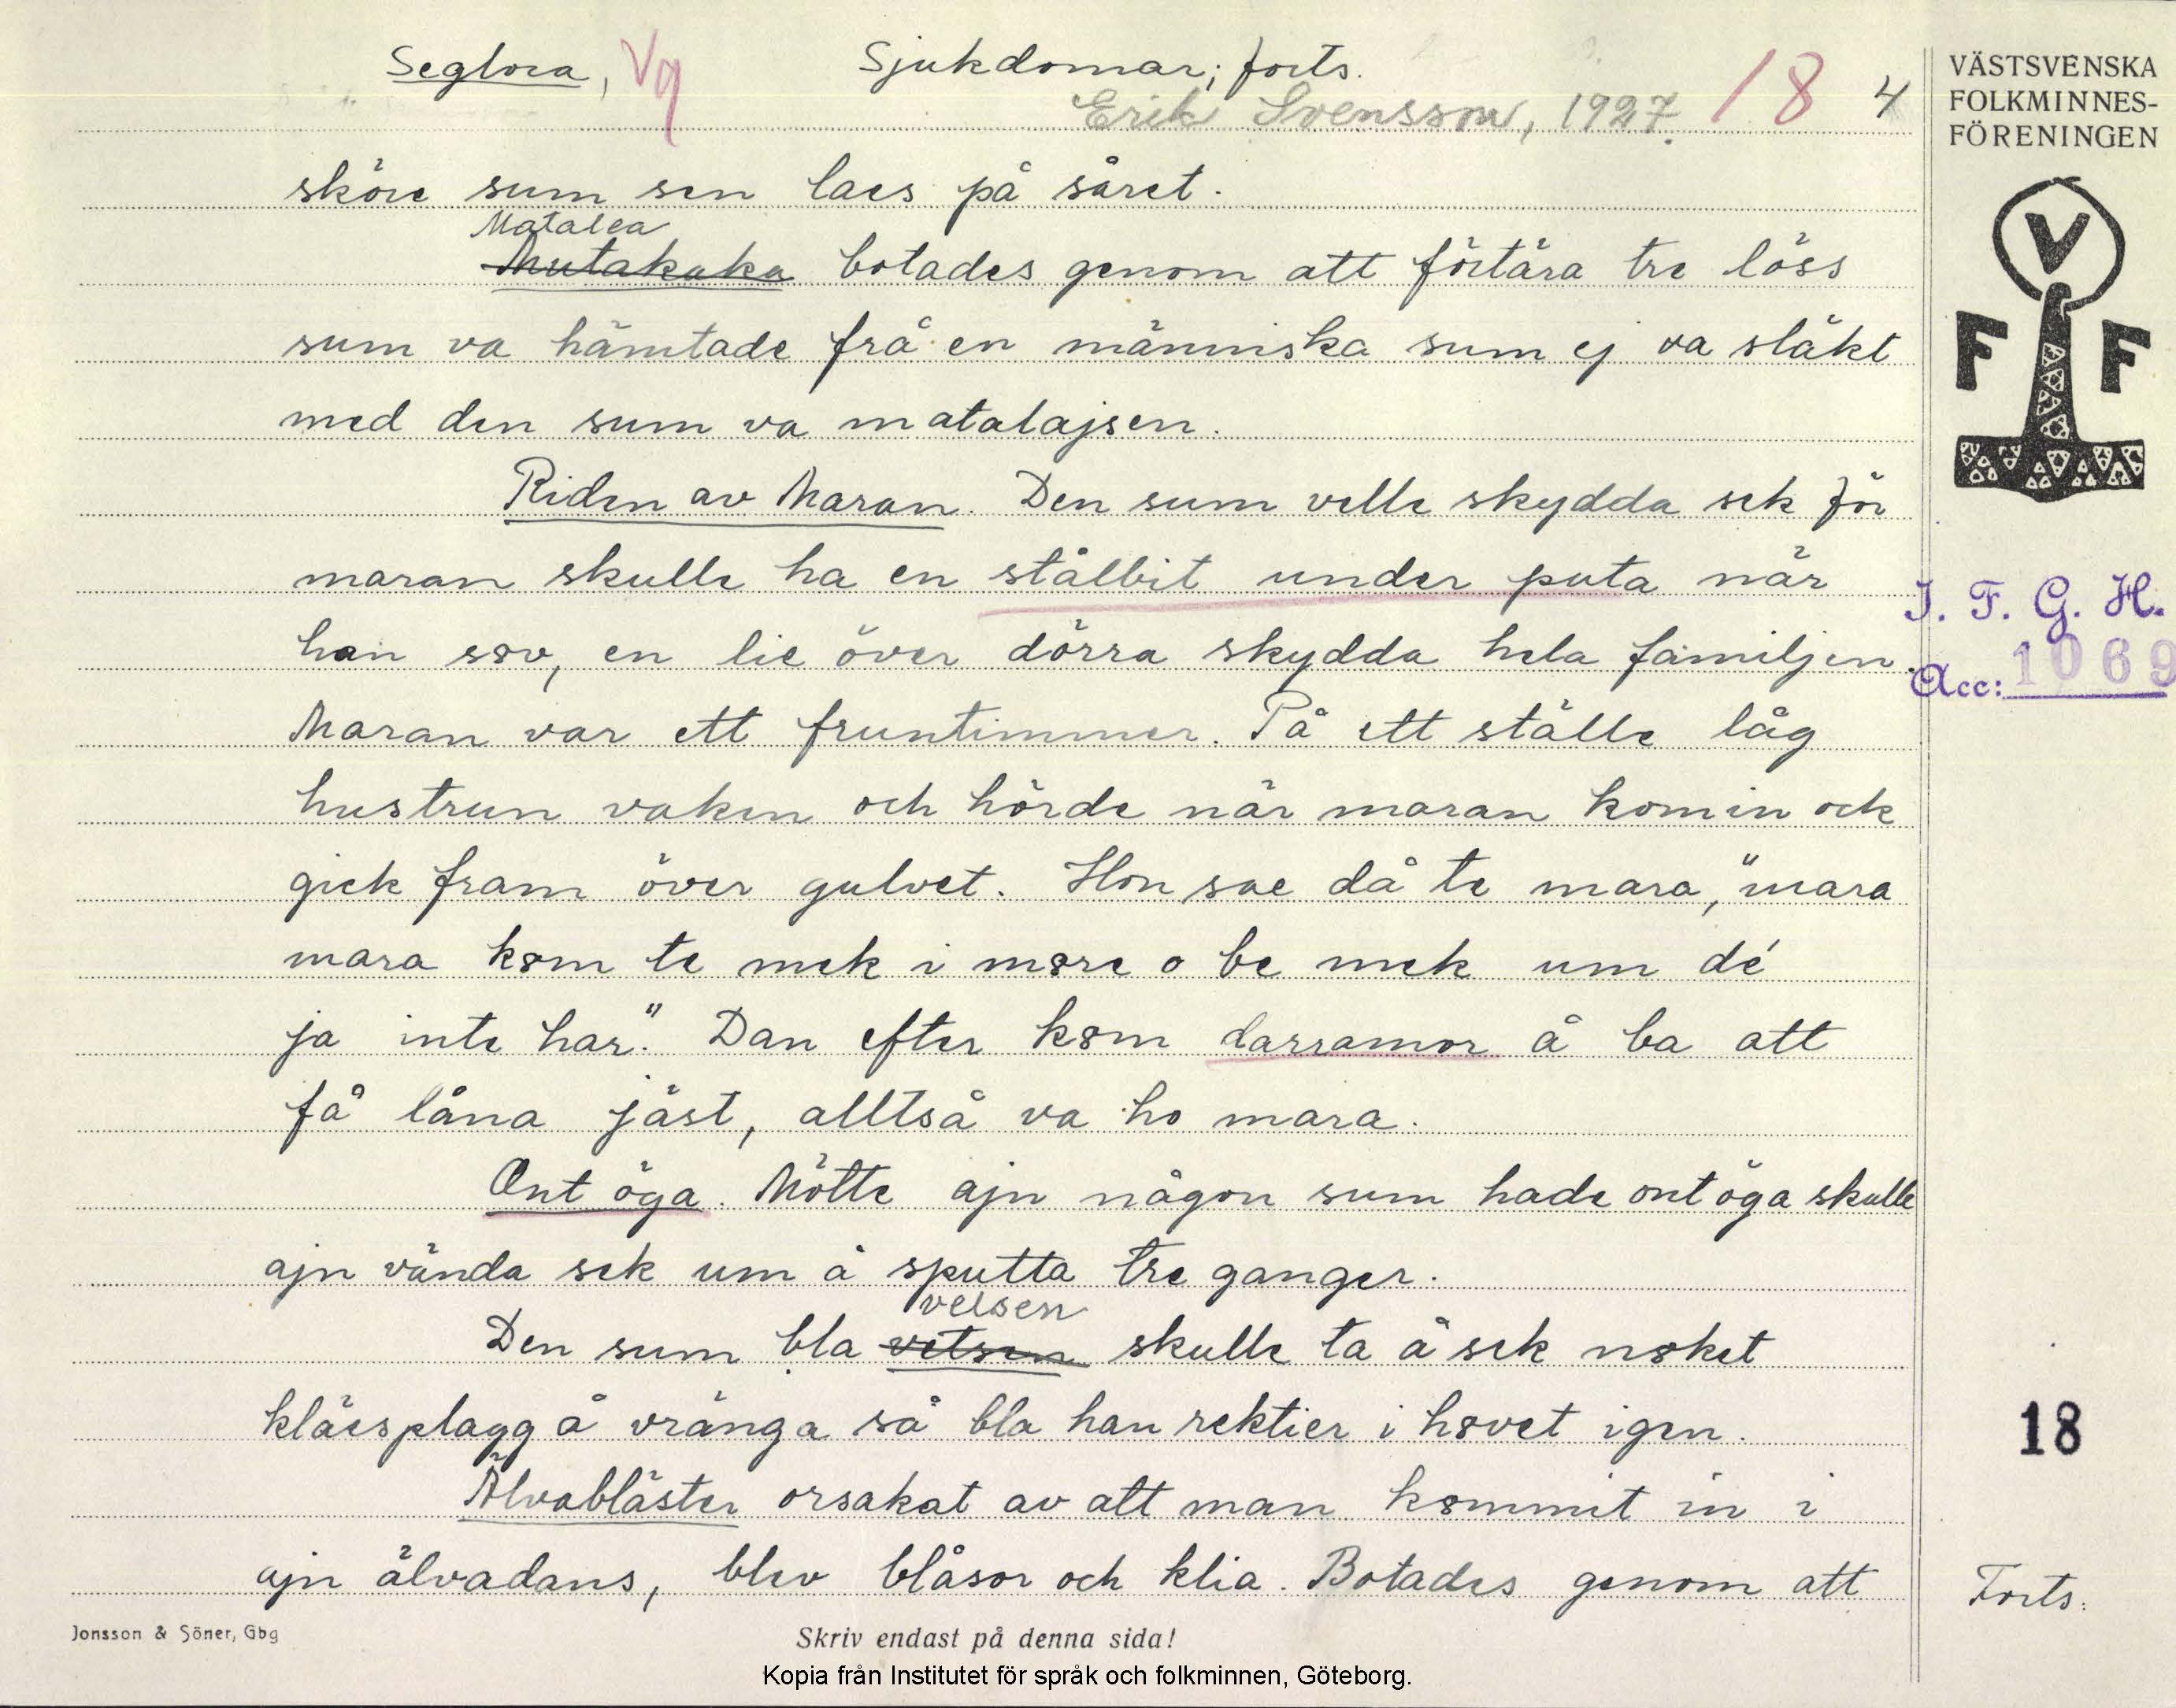 Seglora, Vg Sjukdomar; forts.
Erik Svensson, 1927. 18 4
sköre sum sen laes på såret.
Matalea
Mutakaka botades genom att förtära tre löss
sum va hämtade frå en människa sum ej va släkt
med den sum va matalajsen.
Riden av Maran. Den sum velle skydda sek för
maran skulle ha en stålbit under puta når
han sov, en lie över dörra skydda hela familjen.
Maran var ett fruntimmer. På ett ställe låg
hustrun vaken och hörde når maran kom in ock
gick fram över gulvet. Hon sae då te mara, "mara
mara kom te mek i more o be mek um de´
ja inte har." Dan efter kom darramor å ba att
få låna jäst, alltså va ho mara.
Ont öga. Mötte ajn någon sum hade ont öga skulle
ajn vända sek um å sputta tre ganger.
velsen
Den sum bla vetsen skulle ta å sek noket
kläesplagg å vränga så bla han rektier i hovet igen.
Älvabläster orsakat av att man kommit in i
ajn älvadans, blev blåsor och klia. Botades genom att
VÄSTSVENSKA
FOLKMINNES-
FÖRENINGEN
V
F F
I. F. G. H.
Acc: 1069
18
Forts.
Jonsson & Söner, Gbg
Skriv endast på denna sida!
Kopia från Institutet för språk och folkminnen, Göteborg.